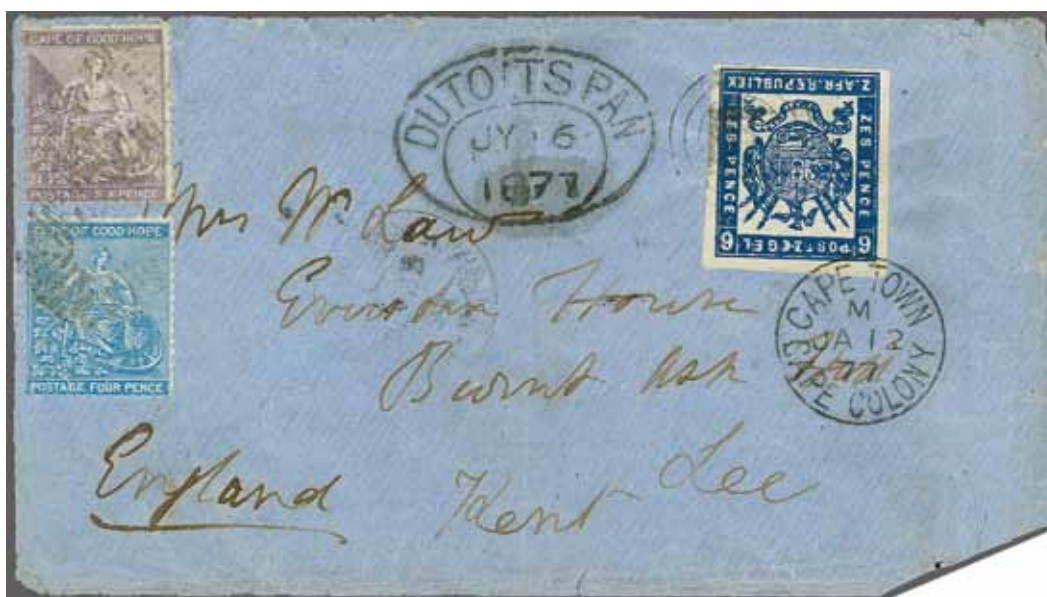 CAPE OF GOOD HOPE
POSTAGE SIX PENCE
CAPE OF GOOD HOPE
POSTAGE FOUR PENCE
DUTOITSPAN
JY 6
1877
Z. AFR. REPUBLIEK
ZES PENCE
ZES PENCE
6 POSTZEGEL 6
CAPE TOWN
M
JA 12
CAPE COLONY
Mrs Wm Law
House
Burnt Ash
Lee
Kent
England